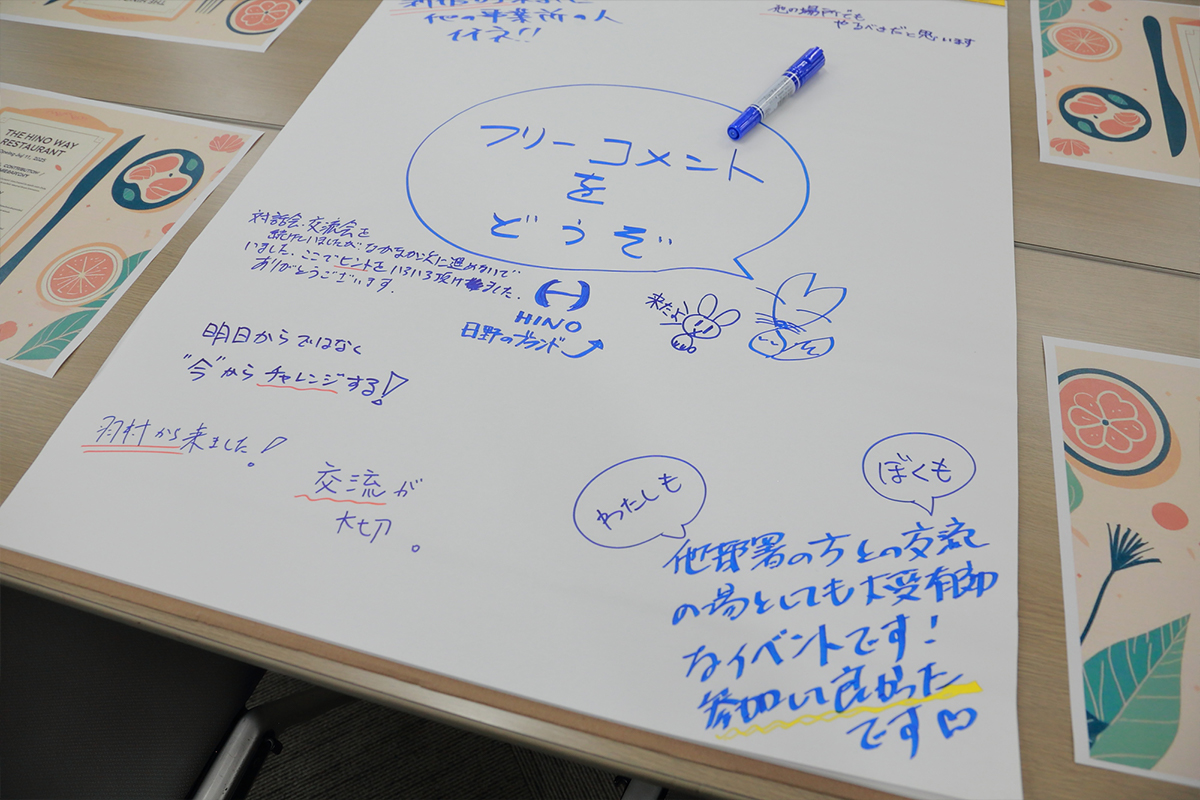 他の事業所の人
イイネ!!
他の場所でも
やるべきだと思います
フリーコメント
を
どうぞ
THE HINO WAY
RESTAURANT
対話会、交流会を
続けていましたが、なかなか次に進めないで
いました。ここでヒントをいろいろ頂けました。
ありがとうございます。
HINO
日野のブランド
来たよ
明日からではなく
"今"からチャレンジする!
羽村から来ました!
交流が
大切。
わたしも
ぼくも
他部署の方との交流
の場としても大変有効
なイベントです!
参加して良かった
です♡